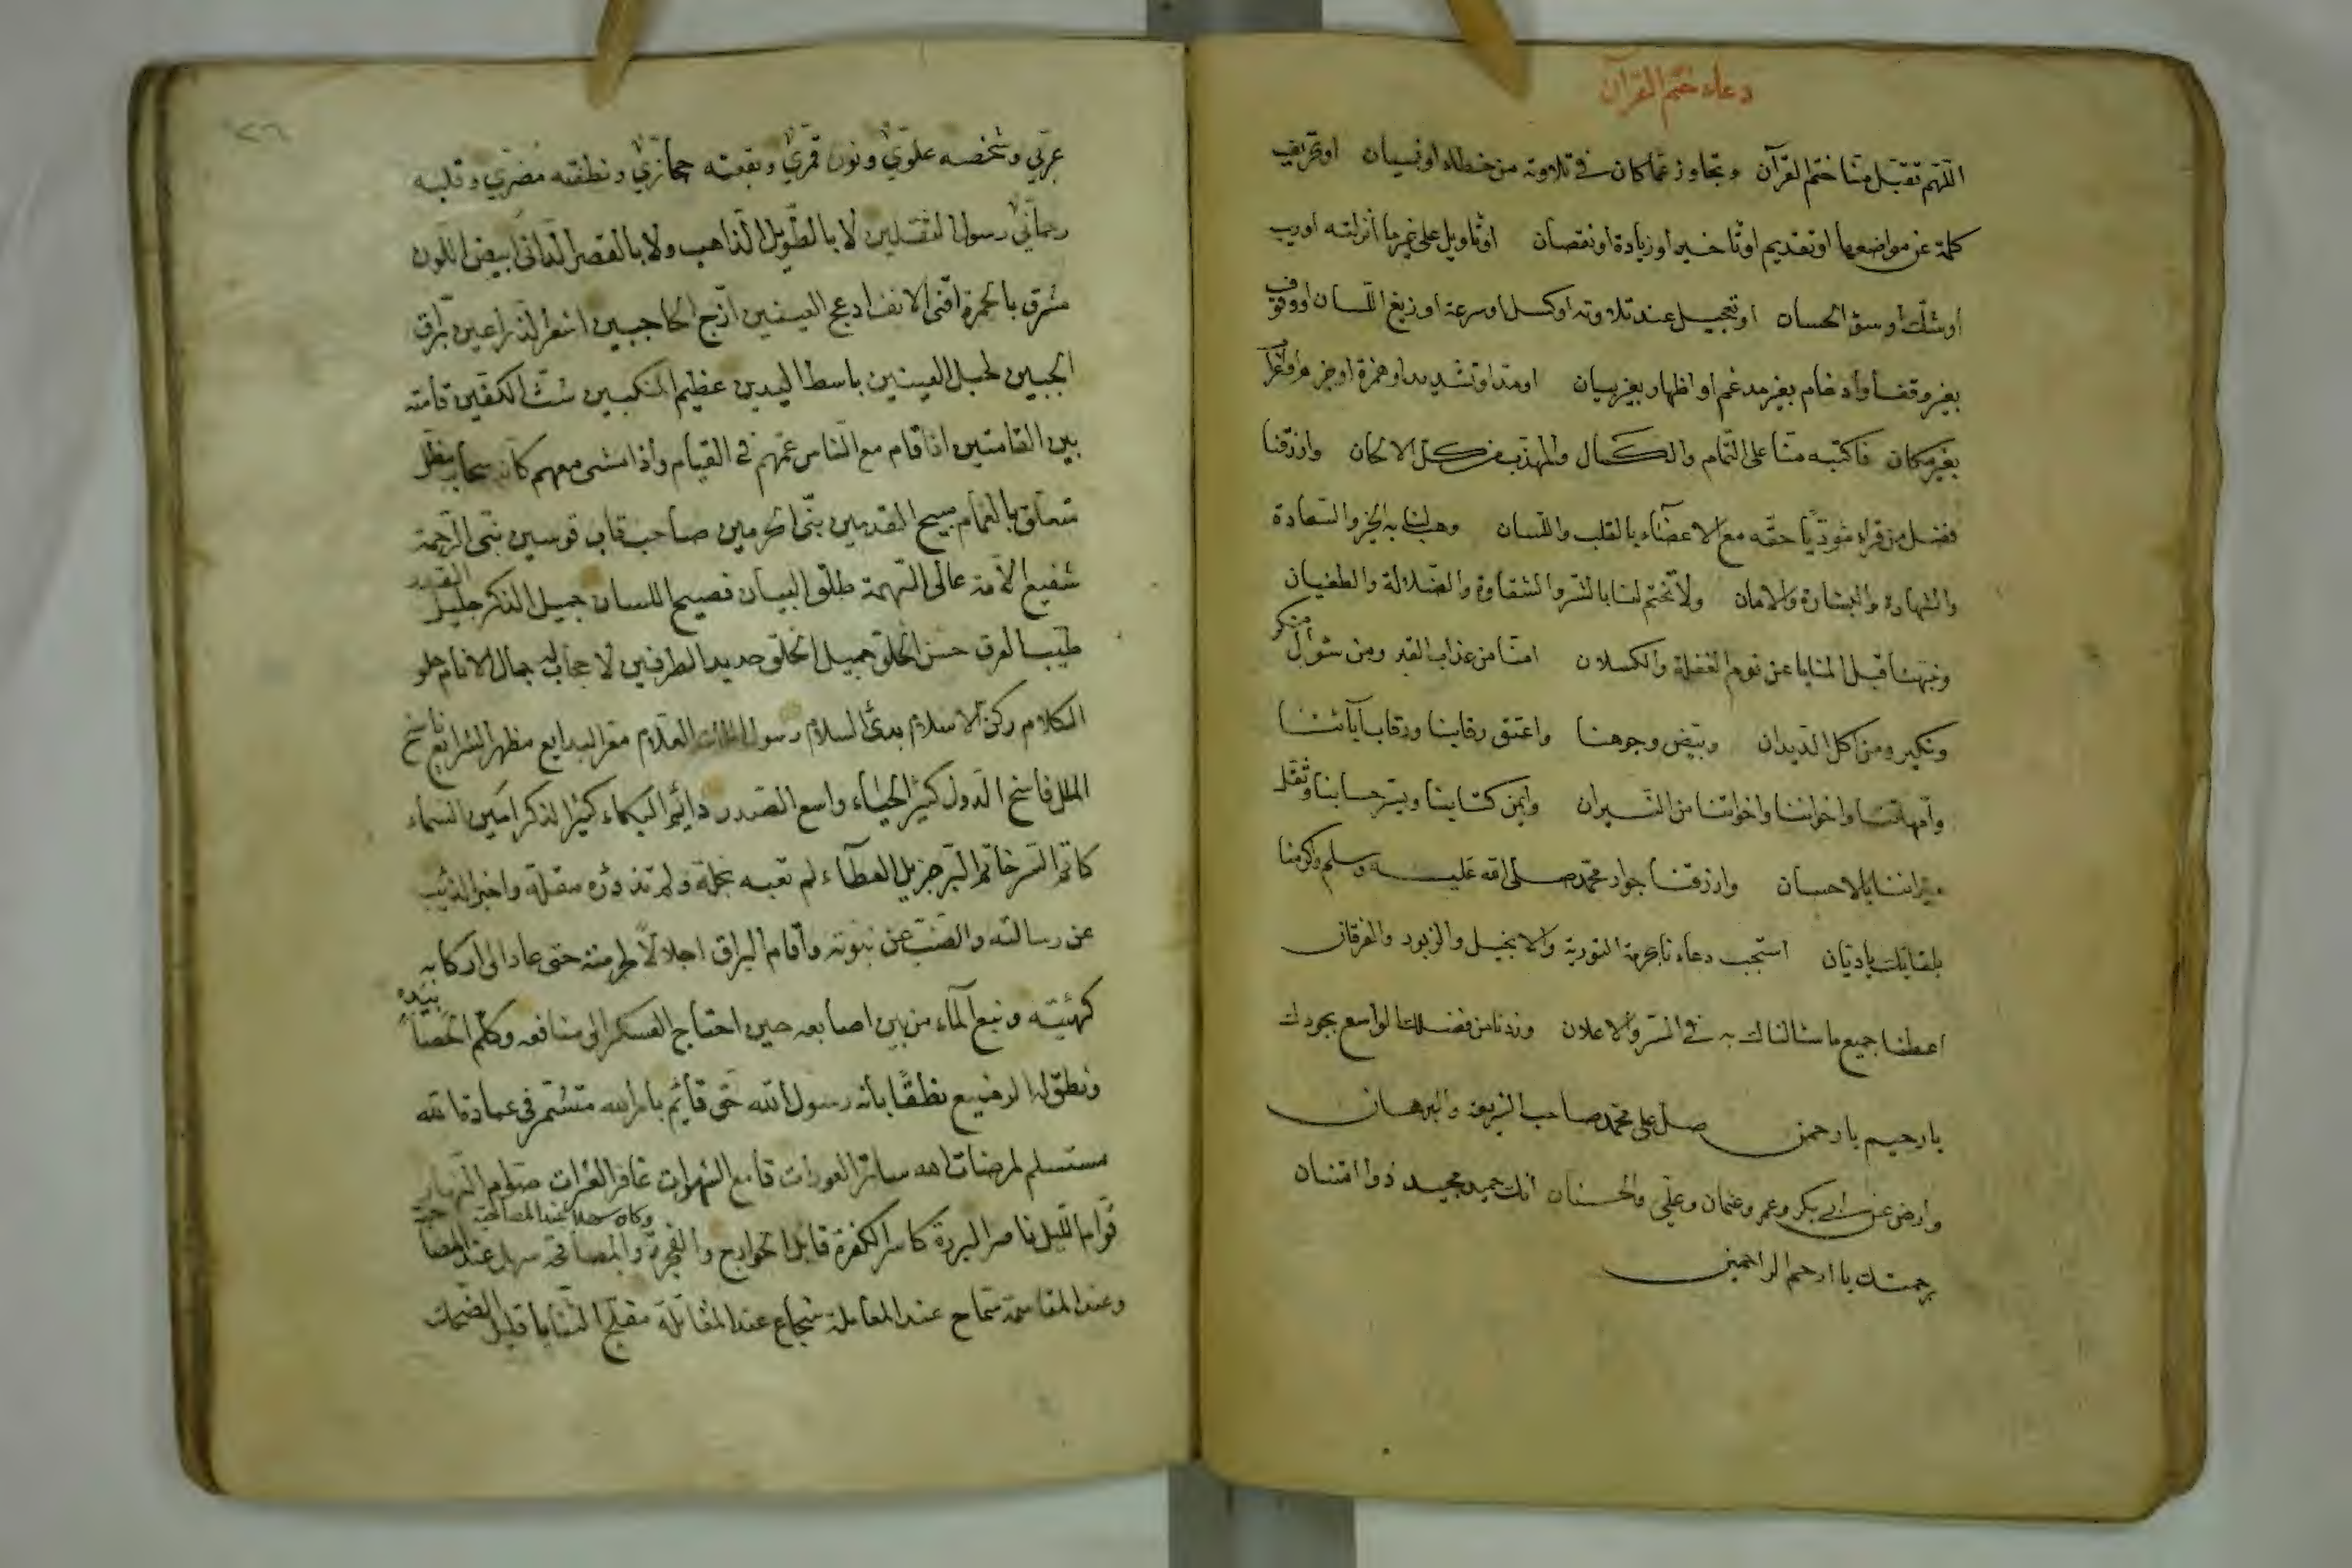 دعاء ختم القرآن
اللهم تقبل منا ختم القرآن وتجاوز عما كان في تلاوته من خطاء او نسيان او تحريف
كلمة عن مواضعها او تقديم او تاخير او زيادة او نقصان او تاويل على غير ما أنزلته او ريب
او شك او سوء الحسان او تعجيل عند تلاوته او كسل او سرعة او زيغ اللسان او وقوف
بغير وقف أو ادغام بغير مدغم او اظهار بغير بيان او مد او تشديد او همزة او جزم او
بغير مكان فاكتبه منا على التمام والكمال والمهذب من كل الالحان وارزقنا
فضل من قراه مؤديا حقه مع الاعضاء بالقلب واللسان وهب لنا به الخير والسعادة
والشهادة والبشارة والامان ولا تختم لنا بالشر والشقاوة والضلالة والطغيان
ونبهنا قبل المنايا عن نوم الغفلة والكسلان امنا من عذاب القبر ومن سؤال منكر
ونكير ومن اكل الديدان وبيض وجوهنا واعتق رقابنا ورقاب آبائنا
وأمهاتنا واخواننا واخواتنا من النيران وايمن كتابنا ويسر حسابنا وثقل
ميزاننا بالاحسان وارزقنا جوار محمد صلى الله عليه وسلم واكرمنا
بلقائك يا ديان استجب دعاءنا بحرمة التورية والانجيل والزبور والفرقان
اعطنا جميع ما سالناك به في السر والاعلان وزدنا من فضلك الواسع بجودك
يا رحيم يا رحمن صل على محمد صاحب الشريعة والبرهان
وارض عن ابي بكر وعمر وعثمان وعلي والحسنان انك حميد مجيد ذو امتنان
برحمتك يا ارحم الراحمين
٢٦
عربي وشخصه علوي ونون قمري وبقعته حجازي ونطقته مضري وقلبه
رحماني رسول الثقلين لا بالطويل الذاهب ولا بالقصير الداني ابيض اللون
مشرق بالحمرة اقنى الانف ادعج العينين ازج الحاجبين اشعر الذراعين ابرق
الجبين كحيل العينين باسط اليدين عظيم المنكبين شثن الكفين قامته
بين القامتين اذا قام مع الناس عمهم في القيام واذا مشى معهم كان سحاب مظلل
متعلق بالغمام مسيح القدمين نبي الحرمين صاحب قاب قوسين نبي الرحمة
شفيع الأمة عالى الهمة طلق البيان فصيح اللسان جميل الذكر جليل القدر
طيب العرق حسن الخلق جميل الخلق حديد الطرفين لا حجاب له جمال الانام حلو
الكلام ركن الاسلام بدئ السلام رسول العلام مقر البدايع مظهر الشرايع ناسخ
الملل فاسخ الدول كثير الحياء واسع الصدر دائم البكاء كثير الذكر امين السماء
كاتم السر خاتم البر جزيل العطآء لم تعبه نحلة ولم تذدره مقلة واخبر الذئب
عن رسالته والضب عن نبوته وأقام البراق اجلالا لحرمته حتى عاد الى اركابه
كهيئته ونبع المآء من بين اصابعه حين احتاج العسكر الى منافعه وكلم الحصا بيده
ونطق له الرضيع نطقا بانه رسول الله حق قائم بامر الله متشمر في عبادة الله
مستسلم لمرضات الله ساتر العورات قامع الشهوات غافر العثرات صوام النهار
قوام الليل ناصر البررة كاسر الكفرة قاتل الخوارج والفجرة
وعند المقاسمة سماح عند المعاملة شجاع عند المقاتلة مفلج الثنايا قليل الضحك